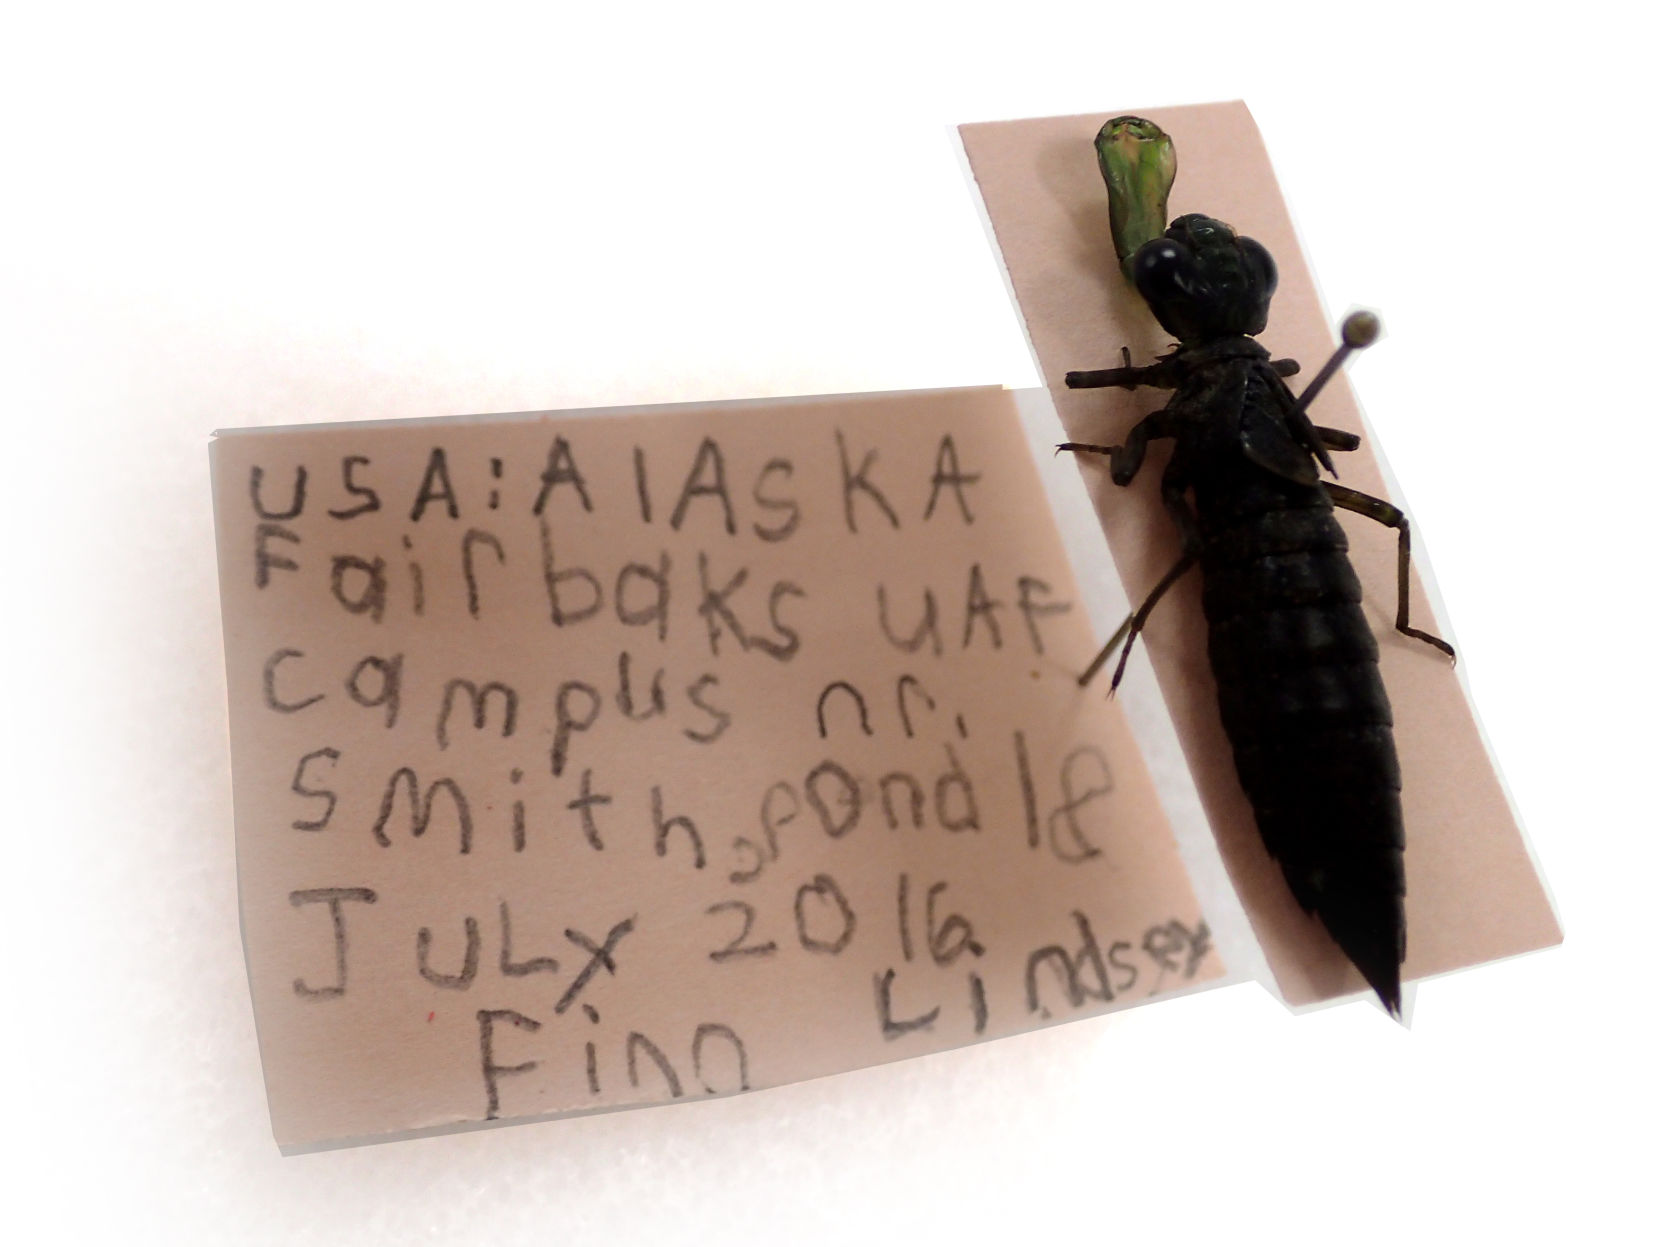 USA: AlASKA
Fairbaks UAF
campus nr.
Smith, pond 18
JULy 2016
Finn Lindsey